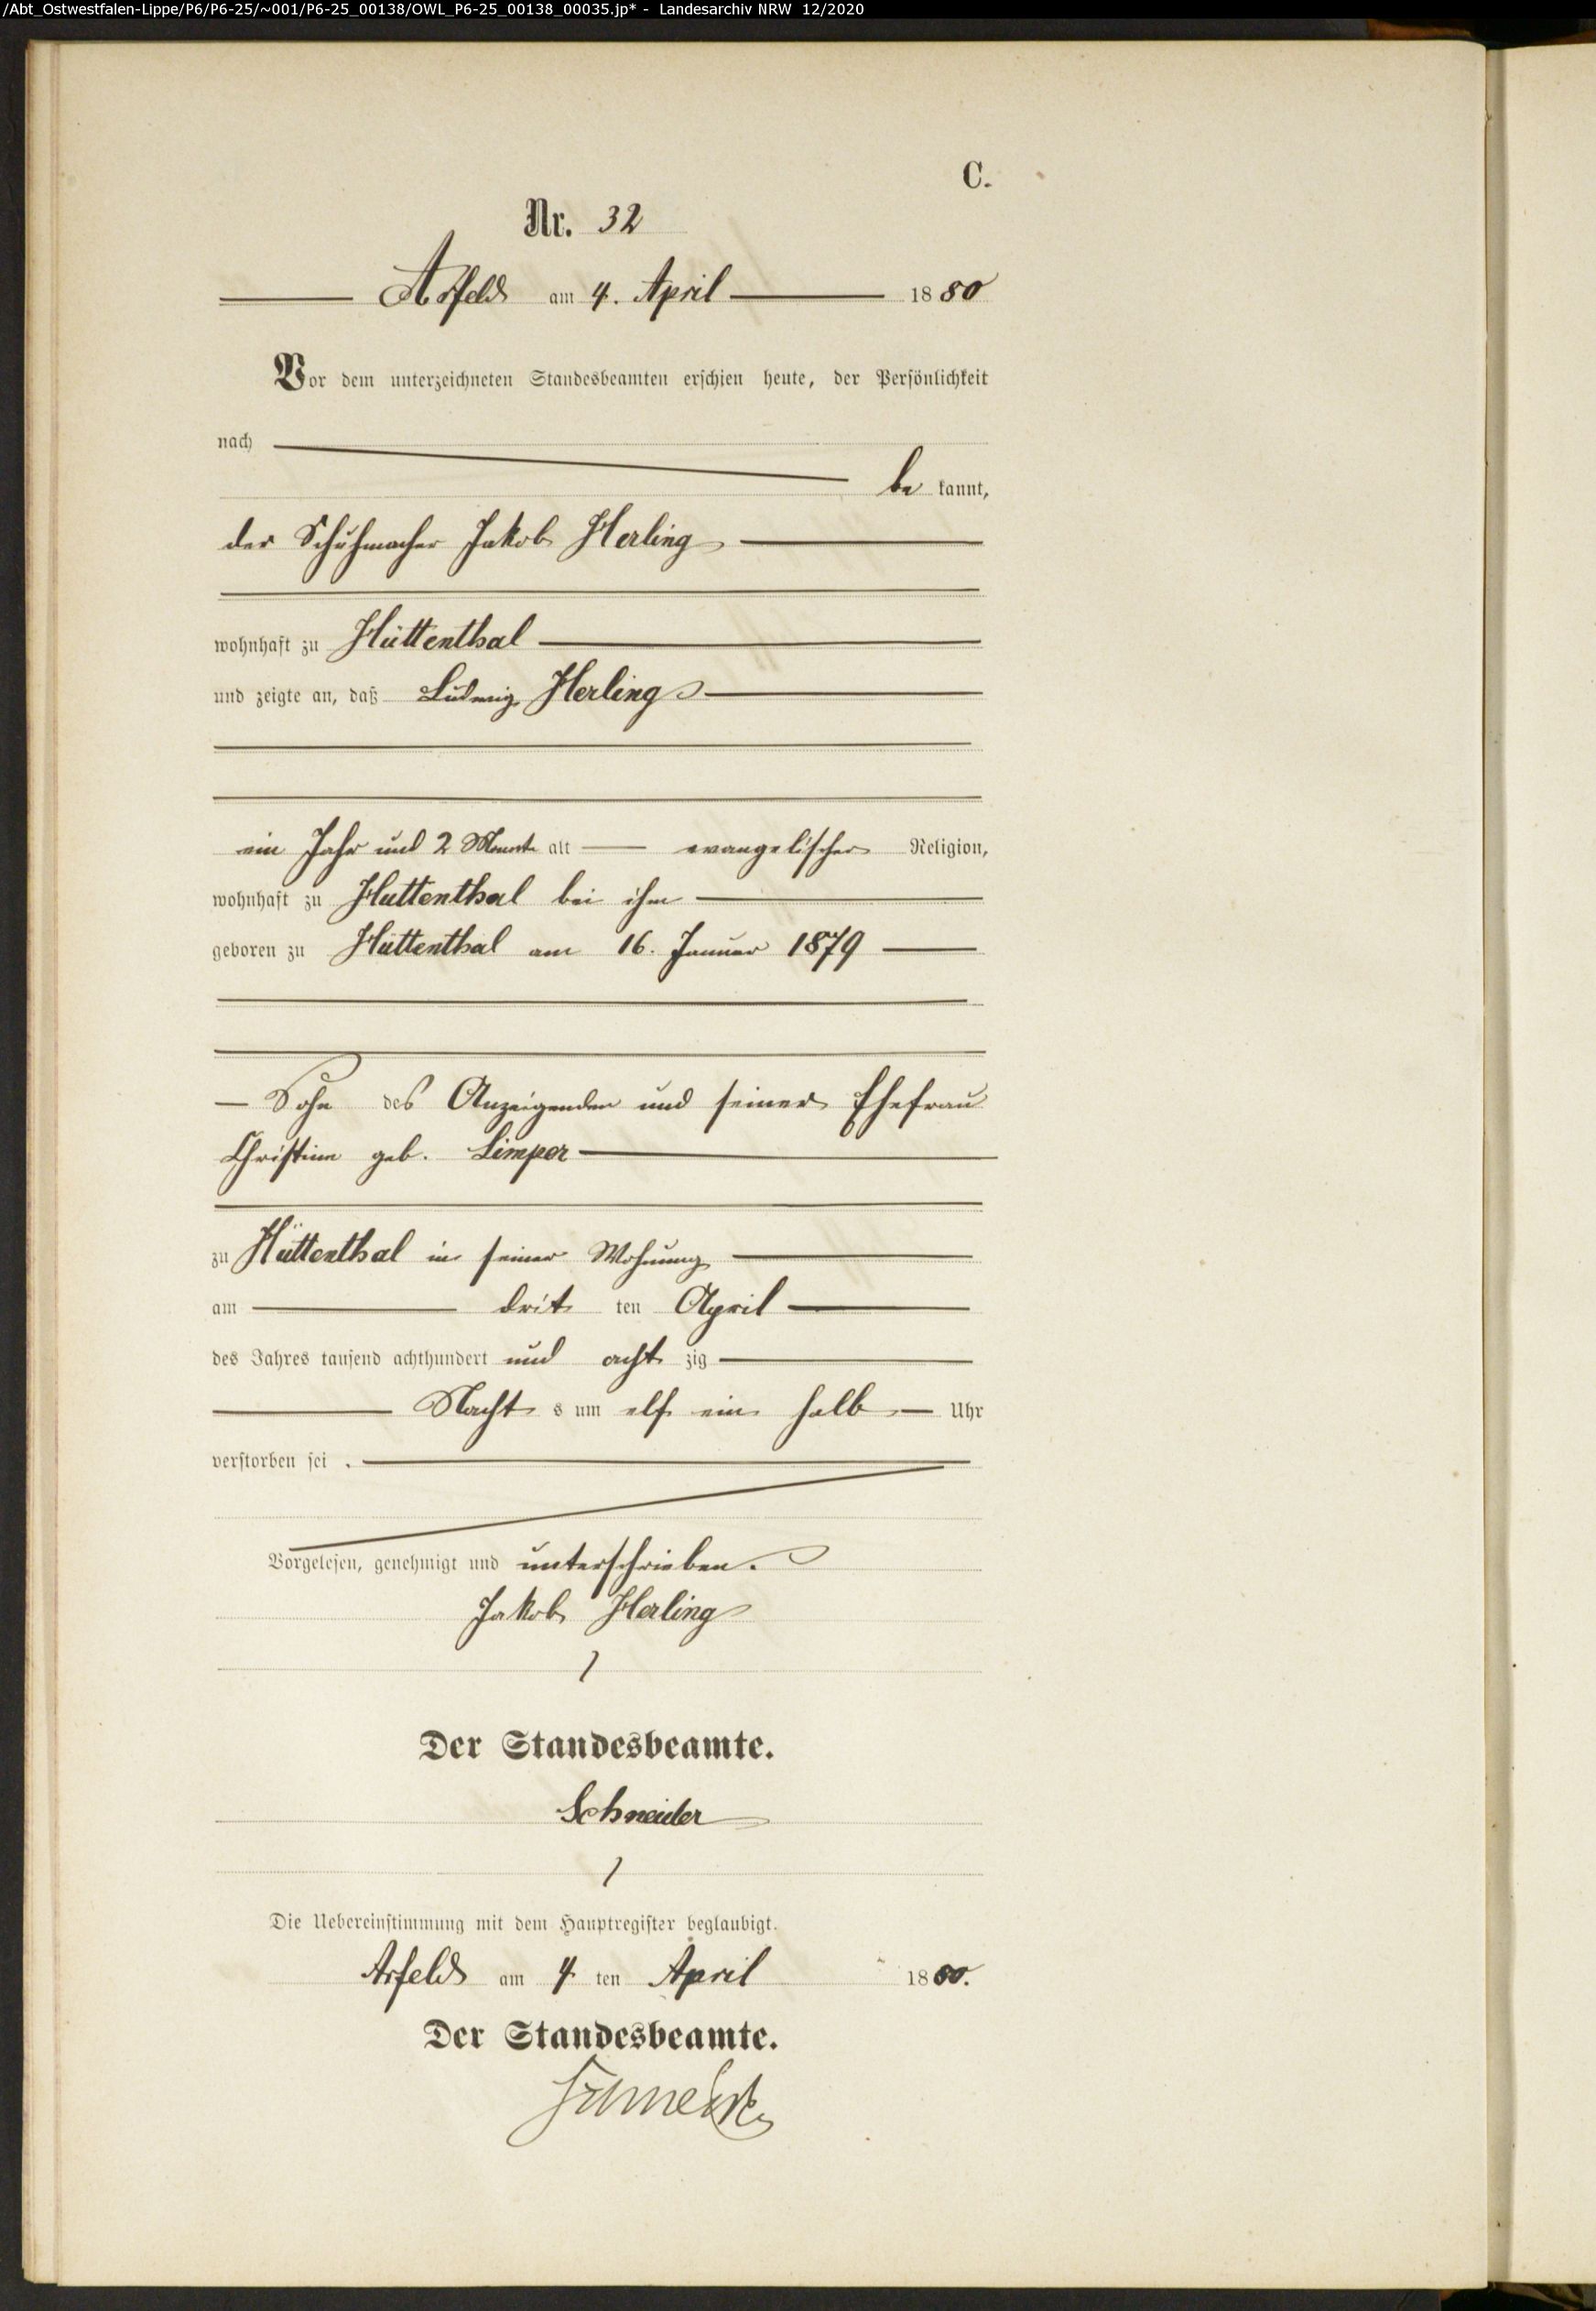 /Abt_Ostwestfalen-Lippe/P6/P6-25/~001/P6-25_00138/OWL_P6-25_00138_00035.jp* - Landesarchiv NRW 12/2020
C.
Nr. 32
Arfeld am 4. April 1880
Vor dem unterzeichneten Standesbeamten erschien heute, der Persönlichkeit
nach
be kannt,
der Schuhmacher Jakob Herling
wohnhaft zu Hüttenthal
und zeigte an, daß Ludwig Herling
ein Jahr und 2 Monate alt evangelischer Religion,
wohnhaft zu Huttenthal bei ihm
geboren zu Hüttenthal am 16. Januar 1879
Sohn des Anzeigenden und seiner Ehefrau
Christine geb. Limper
zu Hüttenthal in seiner Wohnung
am drit ten April
des Jahres tausend achthundert und acht zig
Nacht s um elf ein halb Uhr
verstorben sei .
Vorgelesen, genehmigt und unterschrieben.
Jakob Herling
Der Standesbeamte.
Schneider
Die Uebereinstimmung mit dem Hauptregister beglaubigt.
Arfeld am 4 ten April 1880.
Der Standesbeamte.
Schneider